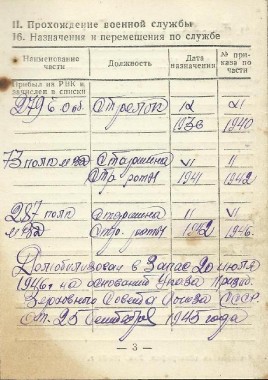 II. Прохождение военной службы
16. Назначения и перемещения по службе
Наименование части
Должность
Дата назначения
№ приказа по части
Прибыл из РВК и зачислен в списки
Стрелок
1940
73 полк
Старшина
VI
II
роты
1941
1942
287 полк
Старшина
VI
VI
роты
1942
1946.
Демобилизован в Запас 20 июля
1946г. на основании Указа Презид.
Верховного Совета Союза СССР.
от 25 сентября 1945 года
— 3 —